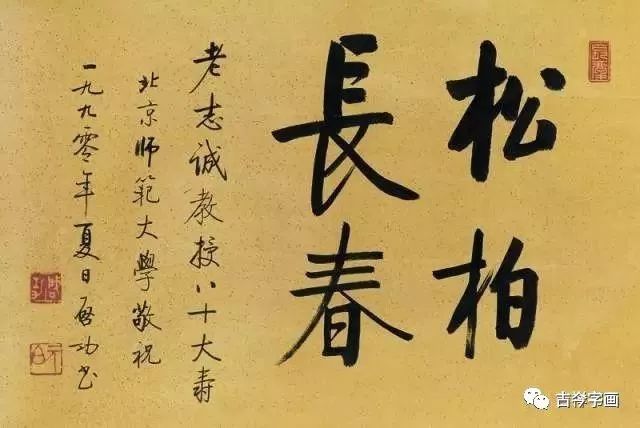 松柏
長春
老志诚教授八十大寿
北京师範大学敬祝
一九九零年夏日啓功书
吉祥字画